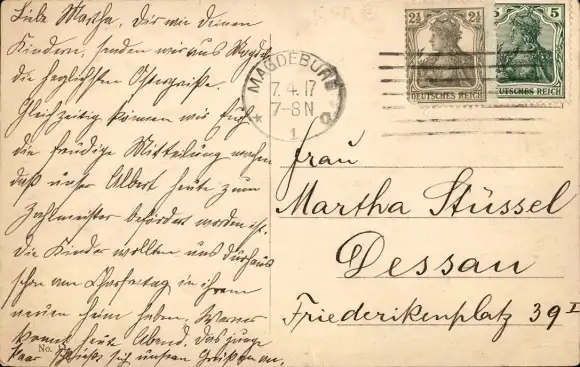 Liebe Martha, Dir wie Deinen
Kindern, senden wir aus Magdeb.
die herzlichsten Ostergrüße.
Gleichzeitig können wir Euch
die freudige Mitteilung machen
daß unser Albert heute zum
Zahlmeister befördert worden ist.
Die Kinder wollten uns durchaus
schon am Charfreitag in ihrem
neuen Heim haben. Werner
kommt heute Abend. Das junge
Paar schließt sich unseren Grüßen an.
No.
MAGDEBURG
7.4.17
7-8N
1
2½ 2½
DEUTSCHES REICH
5 5
DEUTSCHES REICH
Frau
Martha Stüssel
Dessau
Friederikenplatz 39 I